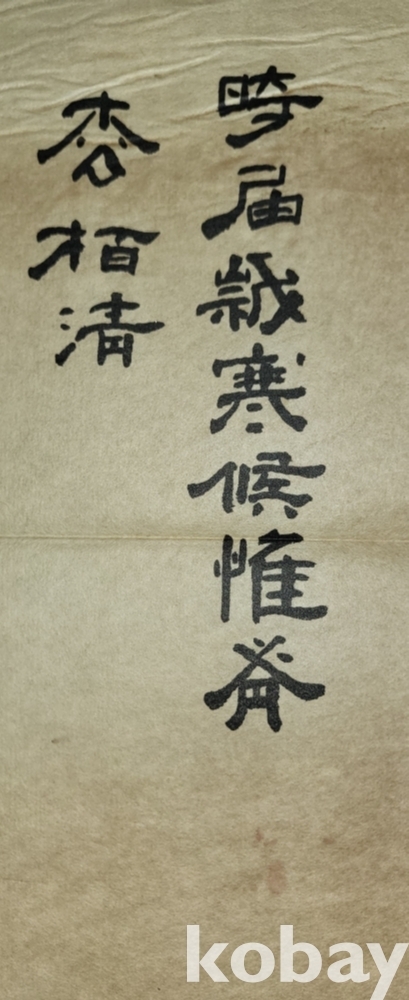 時届歲寒候惟
枀栢清
kobay